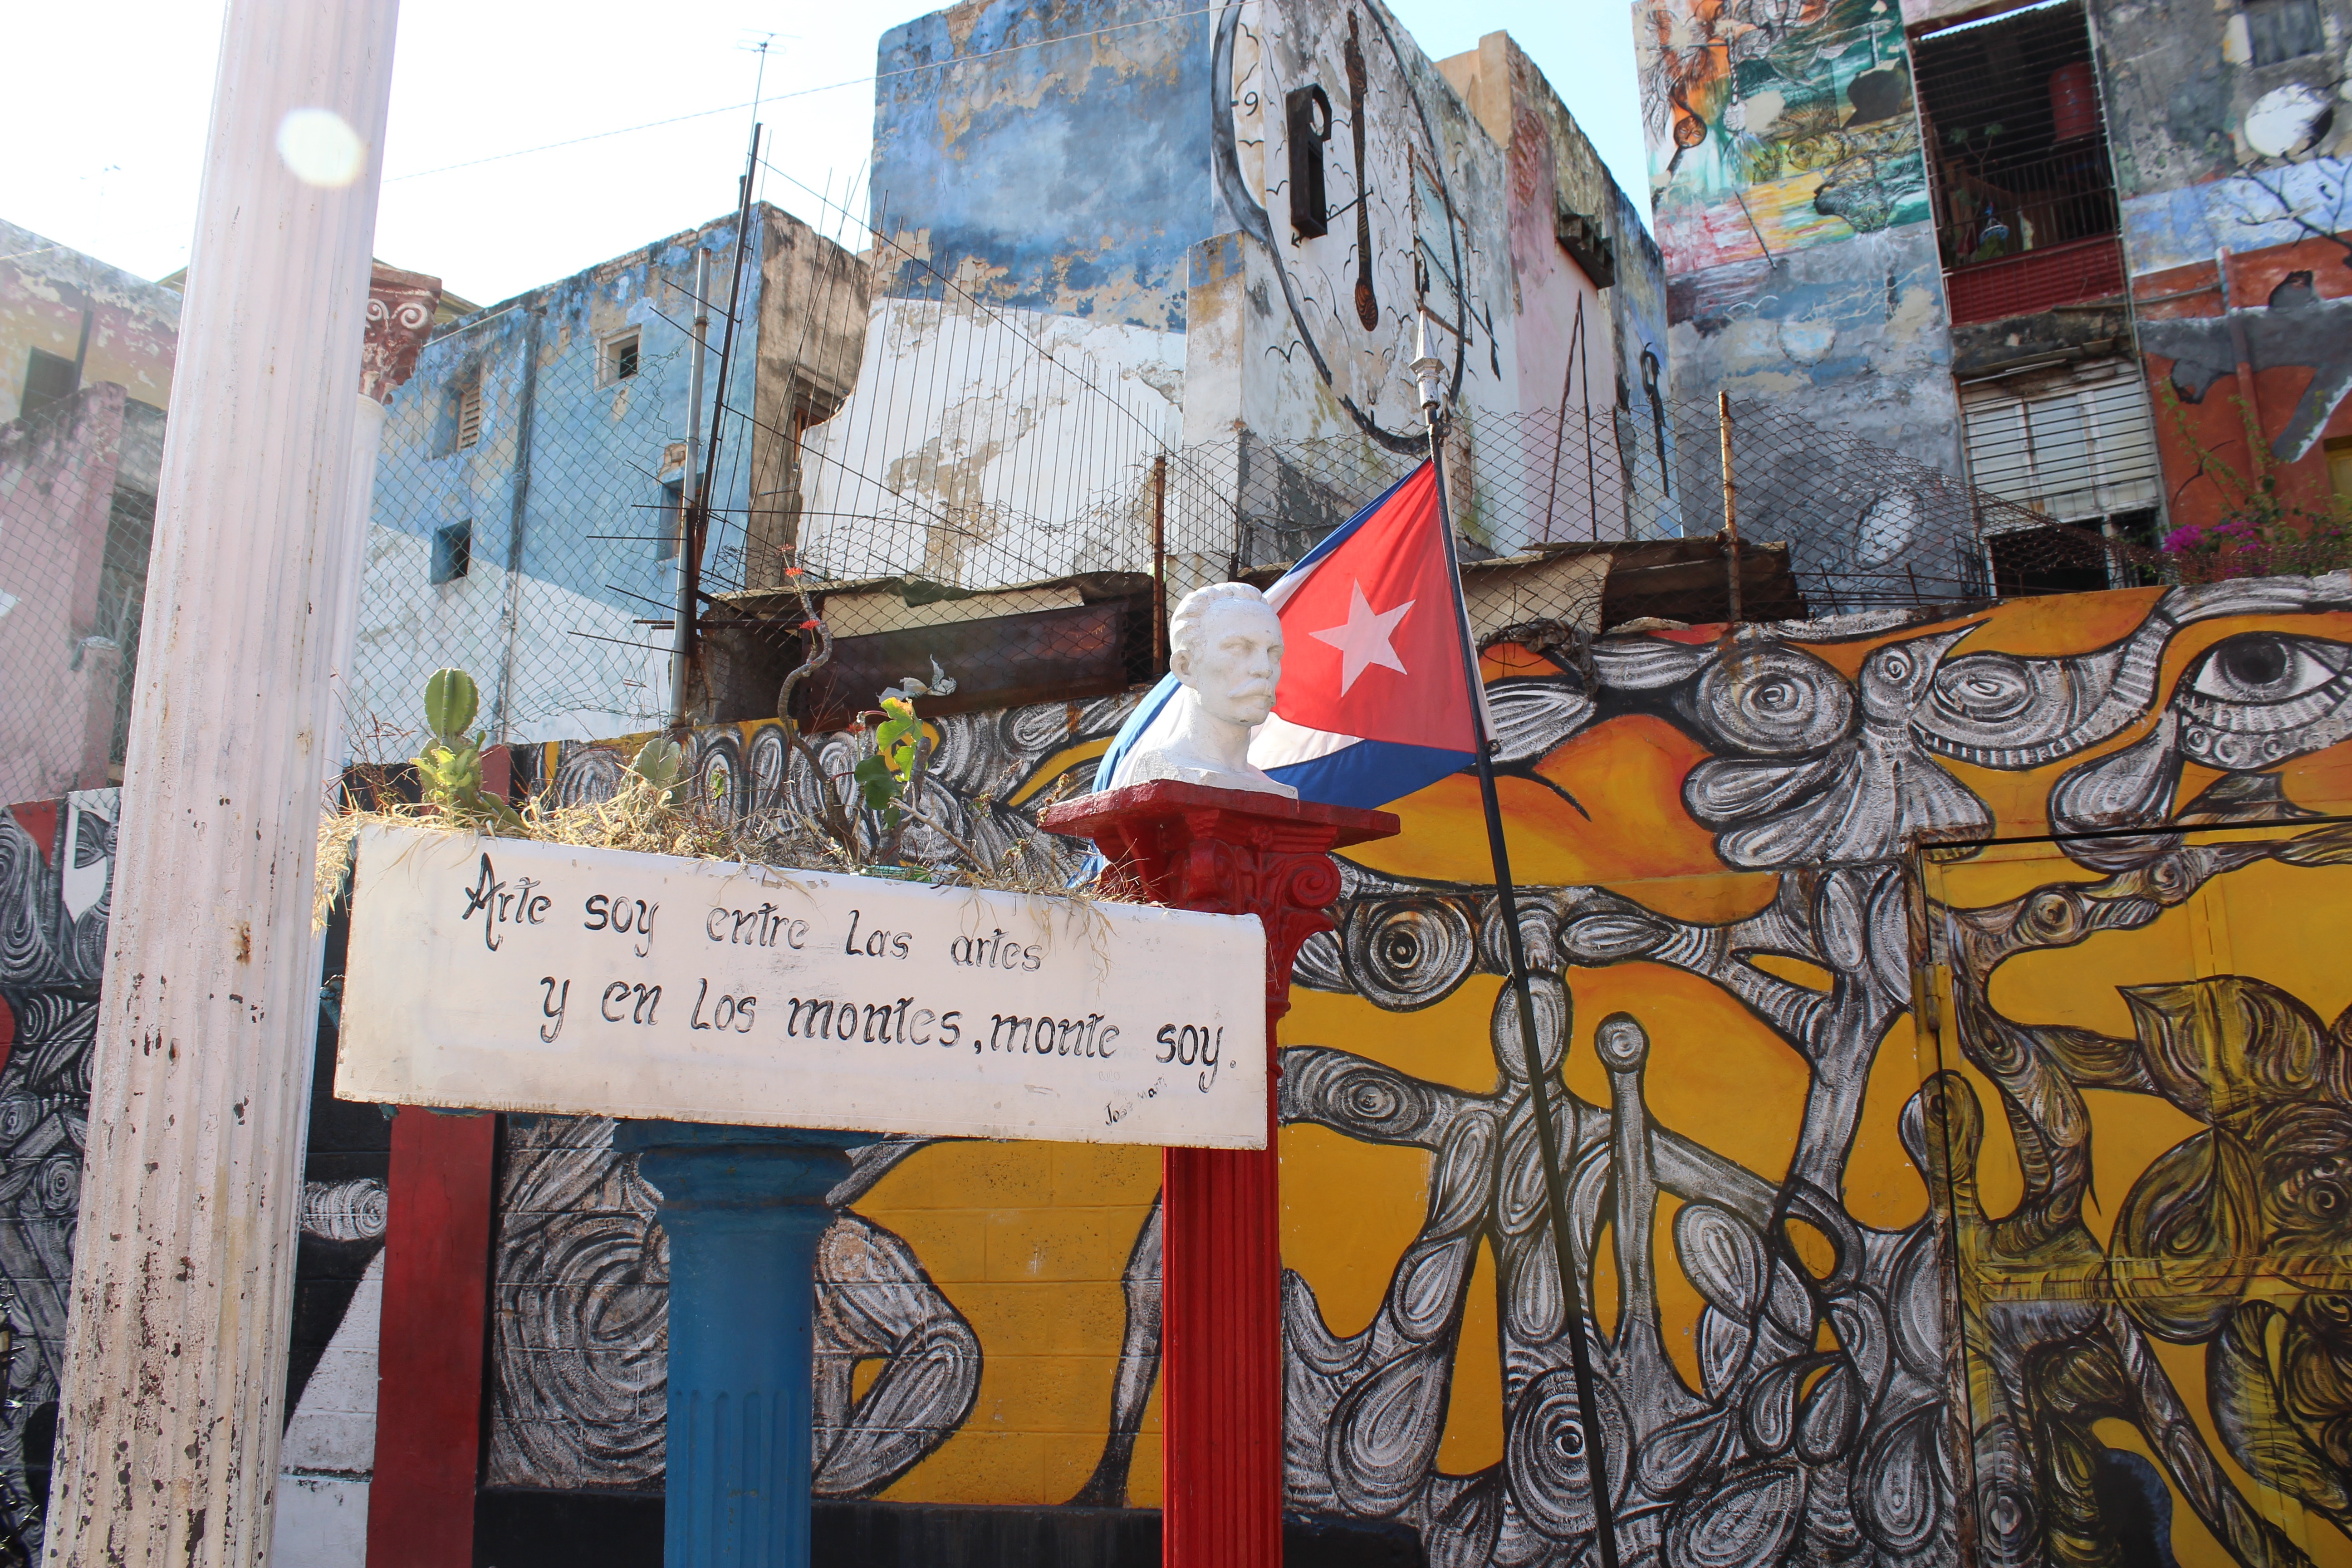 9
Arte soy entre Las artes
y en Los montes, monte soy.
José Martí